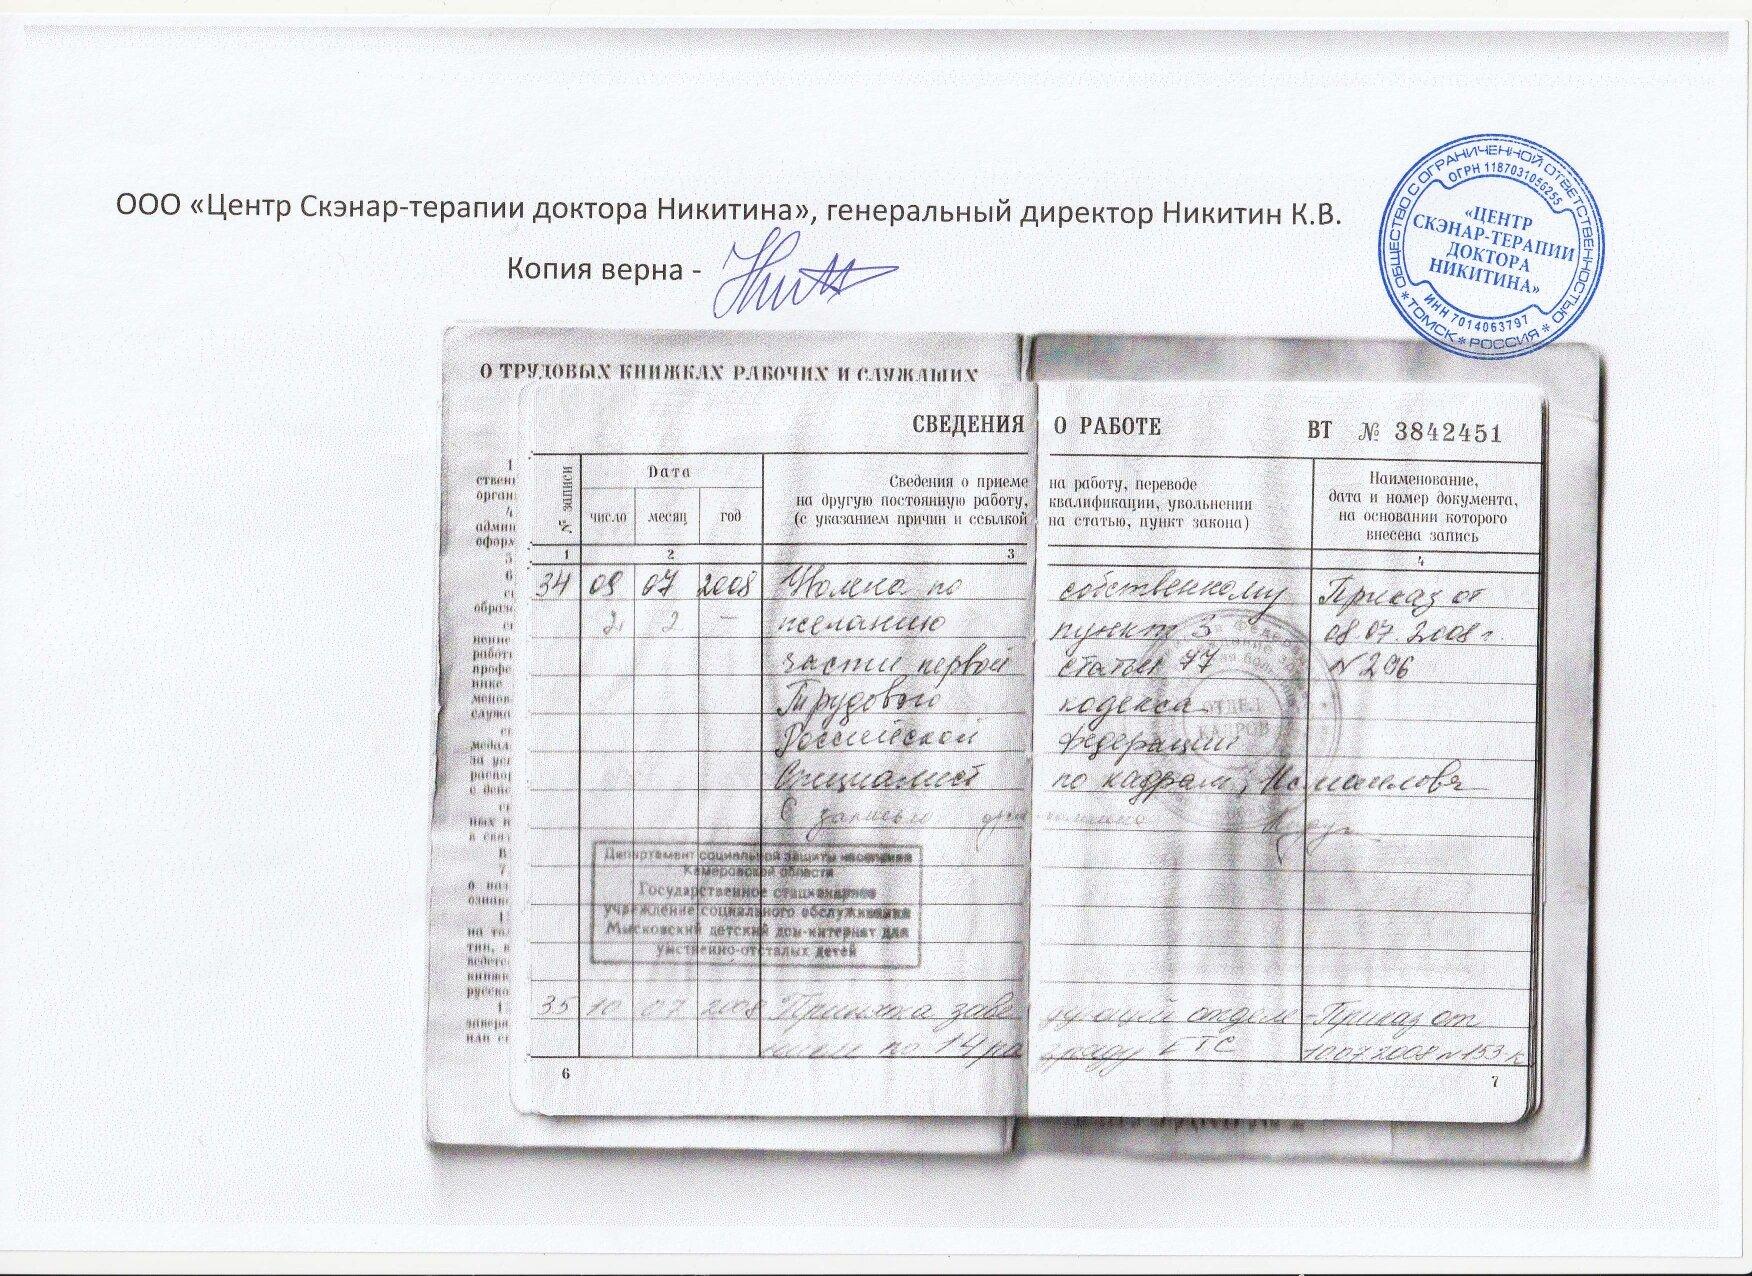 ООО «Центр Скэнар-терапии доктора Никитина», генеральный директор Никитин К.В.
Копия верна -
ОБЩЕСТВО С ОГРАНИЧЕННОЙ ОТВЕТСТВЕННОСТЬЮ
ОГРН 1187031056255
«ЦЕНТР
СКЭНАР-ТЕРАПИИ
ДОКТОРА
НИКИТИНА»
ИНН 7014063797
* ТОМСК * РОССИЯ *
О ТРУДОВЫХ КНИЖКАХ РАБОЧИХ И СЛУЖАЩИХ
СВЕДЕНИЯ О РАБОТЕ ВТ № 3842451
№ записи
Дата
число месяц год
Сведения о приеме на работу, переводе
на другую постоянную работу, квалификации, увольнении
(с указанием причин и ссылкой на статью, пункт закона)
Наименование,
дата и номер документа,
на основании которого
внесена запись
1 2 3 4
34 09 07 2008 Уволена по собственному Приказ от
желанию пункт 3 08.07.2008 г.
части первой статьи 77 № 296
Трудового кодекса
Российской Федерации
Специалист по кадрам Исмаилова
С записью
ОТДЕЛ
КАДРОВ
Департамент социальной защиты населения
Кемеровской области
Государственное стационарное
учреждение социального обслуживания
Мысковский детский дом-интернат для
умственно-отсталых детей
35 10 07 2008 Принята заведующей отделе- Приказ от
нием по 14 разряду ЕТС 10 07 2008 № 153-к
6 7